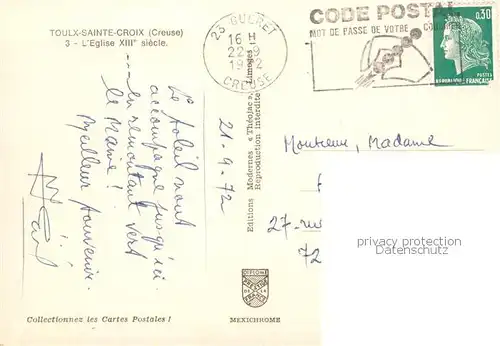 TOULX-SAINTE-CROIX (Creuse)
3 - L'Eglise XIIIe siècle.
Le soleil nous
accompagne jusqu'ici
... en remontant vers
le Maine !
Meilleur souvenir.
21.9.72
Editions Modernes « Théojac », Limoges
Reproduction interdite
23 GUERET
16 H
22-9
1972
CREUSE
CODE POSTAL
MOT DE PASSE DE VOTRE COURRIER
0,30
POSTES
REPUBLIQUE FRANÇAISE
Monsieur, Madame
27-
72
privacy protection
© ansichtskarten-center.de
OFFICINE
FRANCE
Collectionnez les Cartes Postales !
MEXICHROME